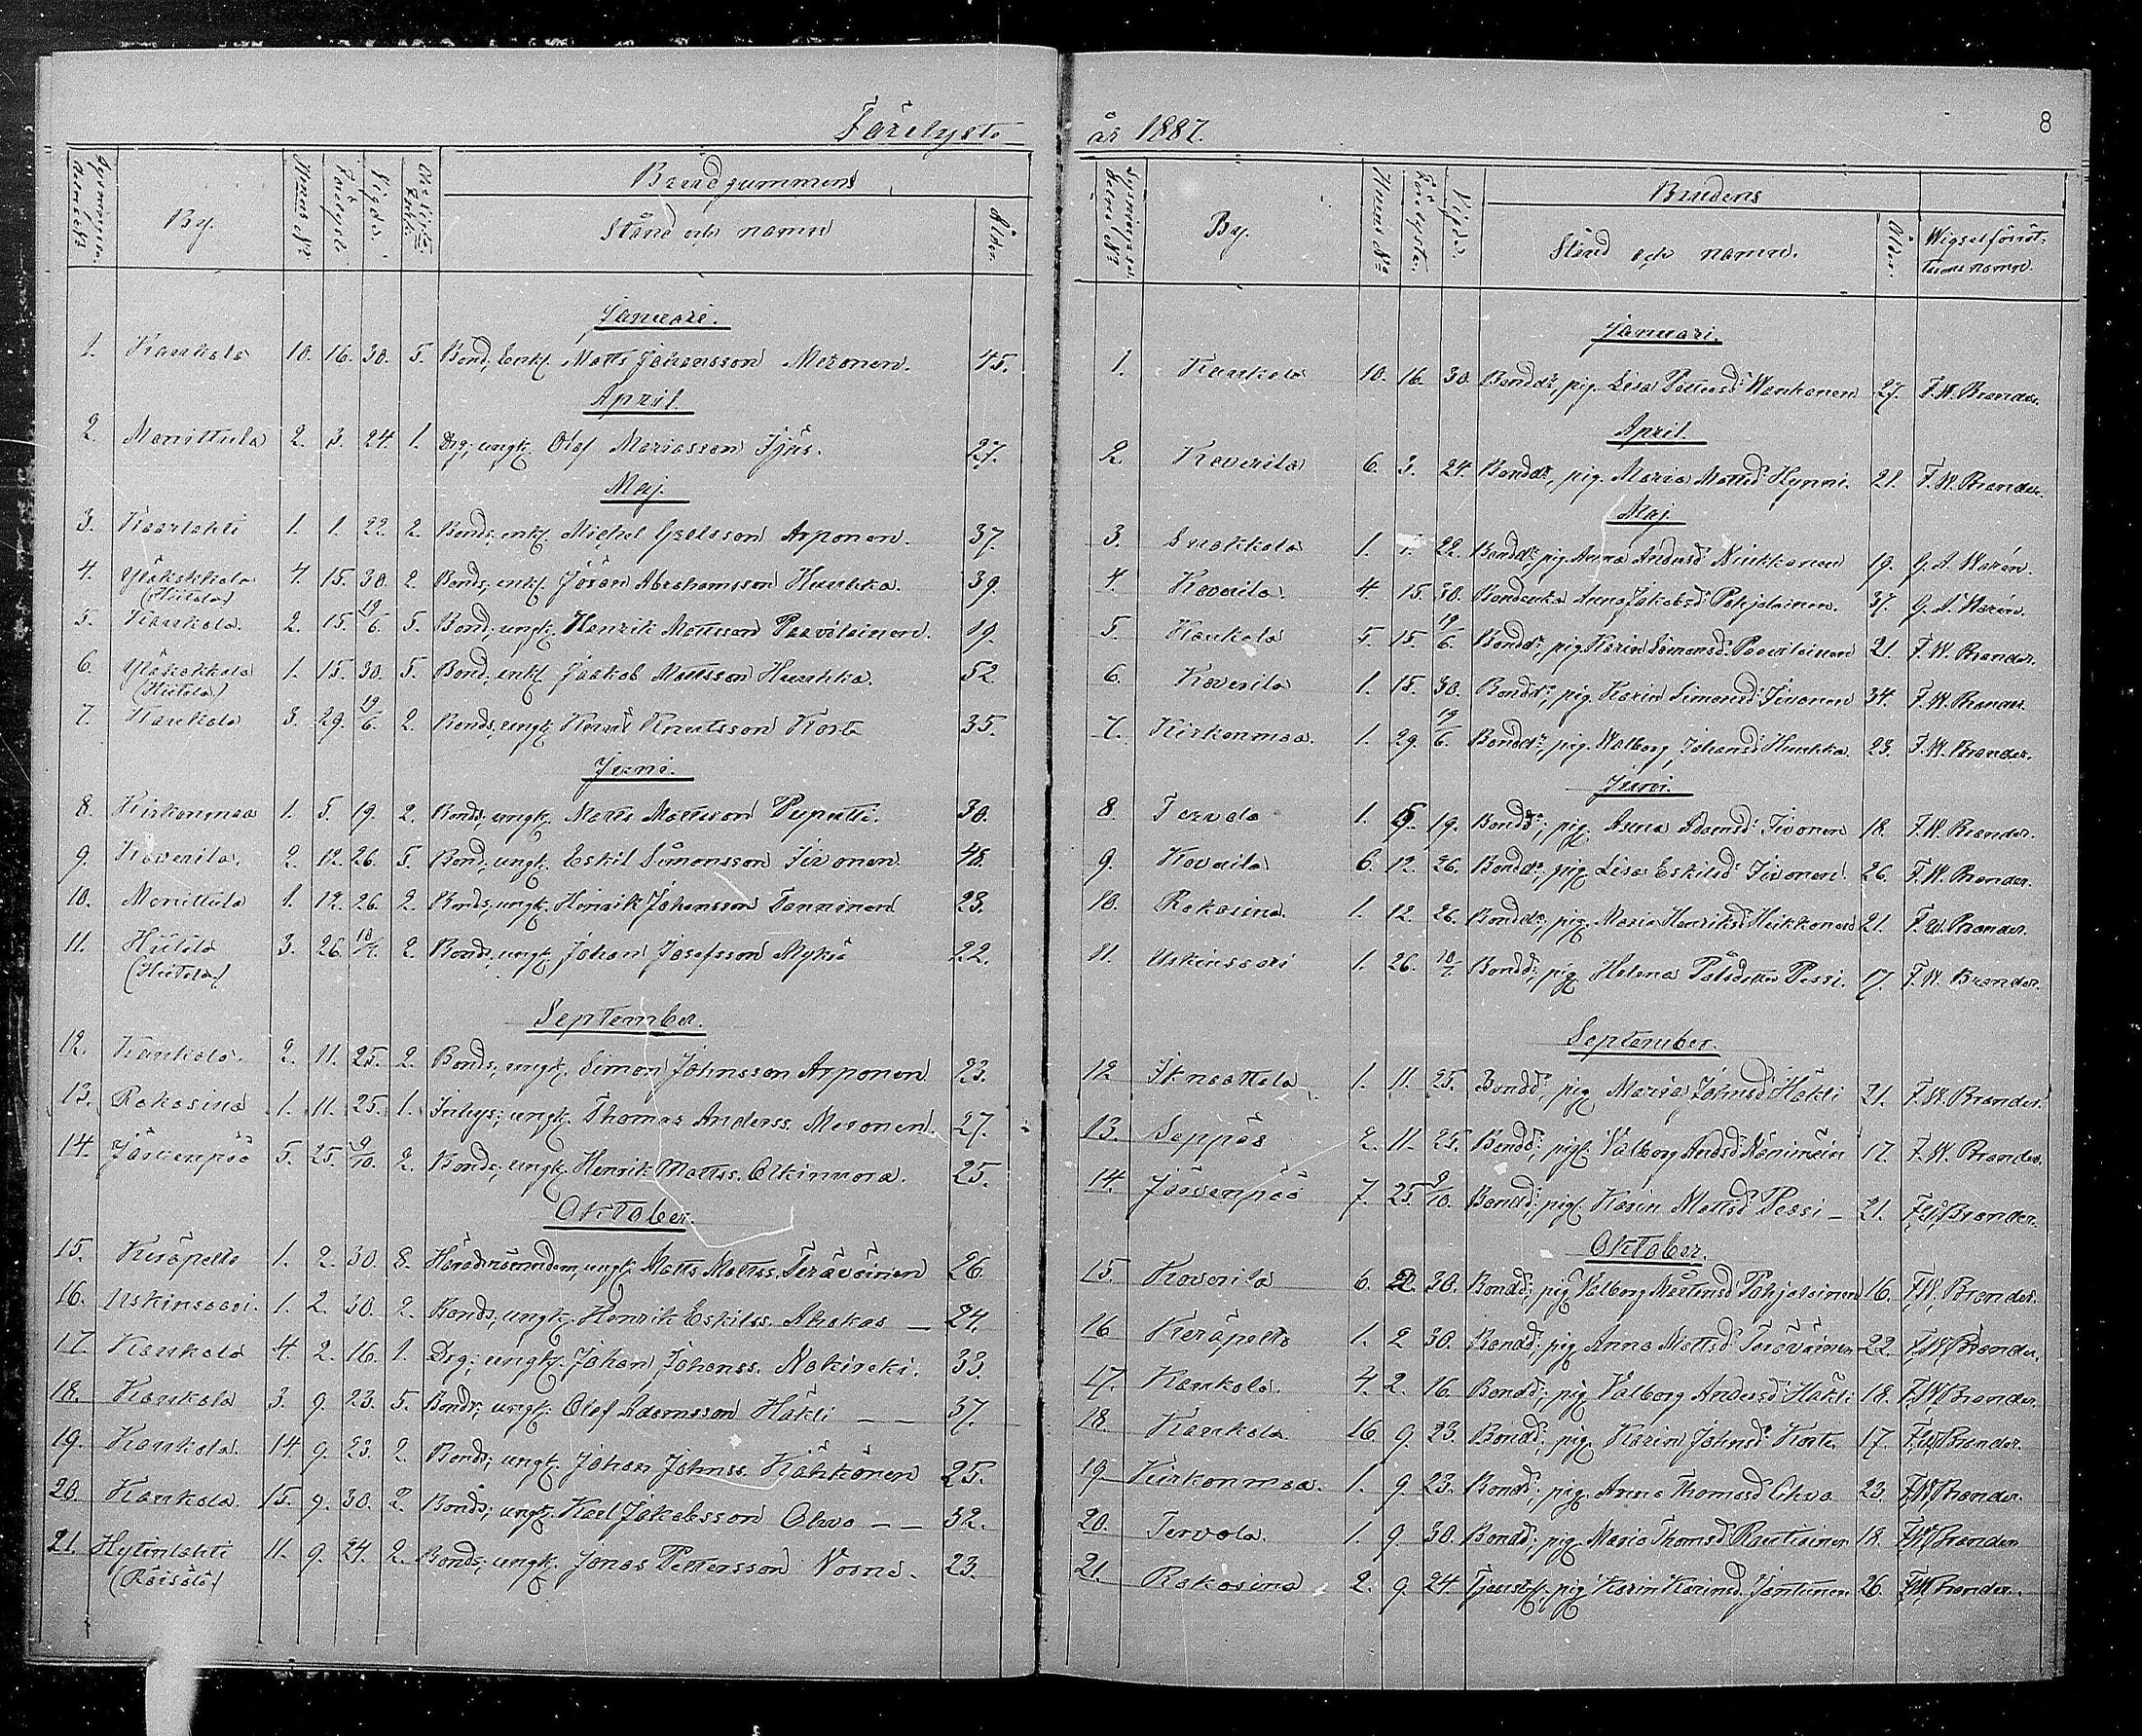 Förelyste
Brudgummens
By.
Hemms Nº
Förelyste
Vigde.
Stånd och namn
Ålder.
Januari.
1. Kaukola 10. 16. 30. 5. Bond, enkl. Matts Johansson Meronen. 45.
April.
2. Monittula 2. 3. 24. 1. Drg; ungk. Olof Mariasson Ijäs. 27.
Maj.
3. Kaarlahti 1. 1. 22. 2. Bonds; enkl. Michel Arponen. 37.
4. Yläkokkola (Hiitola) 4. 15. 30. 2. Bonds; enkl. Jöran Abrahamsson Huuhka. 39.
5. Kaukola. 2. 15. 19/6. 5. Bond; ungk. Henrik Mattsson Paavilainen. 19.
6. Yläkokkola (Hiitola) 1. 15. 30. 5. Bond; enkl. Jaakob Mattsson Huuhka. 52
7. Kaukola 3. 29. 19/6. 2. Bonds; ungk. Knutsson Korte 35.
Juni.
8. Kirkonmaa 1. 5. 19. 2. Bonds; ungk. Matts Mattsson Puputti. 30.
9. Koverila. 2. 12. 26. 5. Bond; ungk. Eskil Simonsson Iivonen. 48.
10. Monittula 1. 12. 26. 2. Bonds; ungk. Henrik Johansson Tanninen 23.
11. (Hiitola) 3. 26. 10/7. 2. Bonds; ungk. Johan Josefsson Mykrä 22.
September.
12. Kaukola. 2. 11. 25. 2. Bonds; ungk. Simon Johnsson Arponen 23.
13. Rakosina 1. 11. 25. 1. Inhys; ungk. Thomas Anderss. Meronen. 27.
14. Järvenpää 5. 25. 9/10. 2. Bonds; ungk. Henrik Mattss. Olkinuora. 25.
Oktober.
15. Keräpelto 1. 2. 30. 8. ungk. Matts Mattss. Teräväinen 26
16. Uskinsaari. 1. 2. 30. 2. Bonds; ungk. Henrik Eskilss. Ahokas — 24.
17. Kaukola 4. 2. 16. 1. Drg; ungk. Johan Johanss. Nokireki. 33.
18. Kaukola 3. 9. 23. 5. Bond; ungk. Olof Adamsson Häkli — — 37.
19. Kaukola. 14. 9. 23. 2. Bonds; ungk. Johan Johnss. Kähkönen 25.
20. Kaukola. 15. 9. 30. 2. Bonds; ungk. Karl Jakobsson Ohvo — — 32.
21. Hytinlahti (Räisälä) 11. 9. 24. 2. Bonds; ungk. Jonas Pettersson Vosna. 23.
8
år 1887.
Brudens
By.
Hemms Nº
Förelyste.
Vigde.
Stånd och namn.
Ålder.
Wigselförrät-
tarens namn.
Januari.
1. Kaukola 10. 16. 30. Bondd:r, pig. Lisa Wankonen 27. F. W. Brander.
April.
2. Koverila 6. 3. 24. Bondd:r, pig. Maria Mattsd: Hynni. 21. F. W. Brander.
Maj.
3. Suokkola 1. 1. 22. Bondd:r, pig. Anna Andersd: Niukkanen 19. G. A. Warén.
4. Koverila. 4. 15. 30. Bondenka Anna Jakobsd: Pohjolainen. 37. G. A. Warén.
5. Kaukola 5. 15. 19/6. Bondd:r, pig. Karin Simonsd: Paavilainen 21. F. W. Brander.
6. Koverila 1. 15. 30. Bondd:r, pig. Karin Simonsd: Iivonen 34. F. W. Brander.
7. Kirkonmaa. 1. 29. 19/6. Bondd:r, pig. Walborg Johansd: Huuhka 23. F. W. Brander.
Juni.
8. Tervola 1. 5. 19. Bondd:r; pig. Anna Adamsd: Iivonen 18. F. W. Brander.
9. Koverila 6. 12. 26. Bondd:r; pig. Lisa Eskilsd: Iivonen. 26. F. W. Brander.
10. Rakosina. 1. 12. 26. Bondd:r; pig. Maria Henriksd: Heikkonen 21. F. W. Brander.
11. Uskinsaari 1. 26. 10/7. Bondd:; pig. Helena Pessi. 17. F. W. Brander.
September.
12 1. 11. 25. Bondd:; pig. Maria Johnsd: Häkli 21. F. W. Brander.
13. Seppäs 2. 11. 25. Bondd:; pig. Valborg Andsd: 17. F. W. Brander.
14. Järvenpää 7. 25 9/10. Bondd:; pig. Karin Mattsd: Pessi — 21. F. W. Brander.
Oktober.
15. Koverila 6. 2. 30. Bondd:; pig. Valborg Mårtensd: Pohjolainen 16. F. W. Brander.
16 Keräpelto 1. 2 30. Bondd:; pig. Anna Mattsd: Teräväinen 22. F. W. Brander.
17. Kaukola. 4. 2. 16. Bondd:; pig. Valborg Andersd: Häkli 18. F. W. Brander.
18. Kaukola 16. 9. 23. Bondd:; pig. Karin Johnsd: Korte 17. F. W. Brander.
19 Kirkonmaa. 1. 9. 23. Bondd:; pig. Anna Thomasd: Ohvo 23. F. W. Brander.
20. Tervola. 1. 9. 30. Bondd:; pig. Maria Thomsd: Rautiainen 18. F. W. Brander
21. Rakosina 2. 9. 24. pig. Karin Karinsd: Jantunen 26. F. W. Brander.